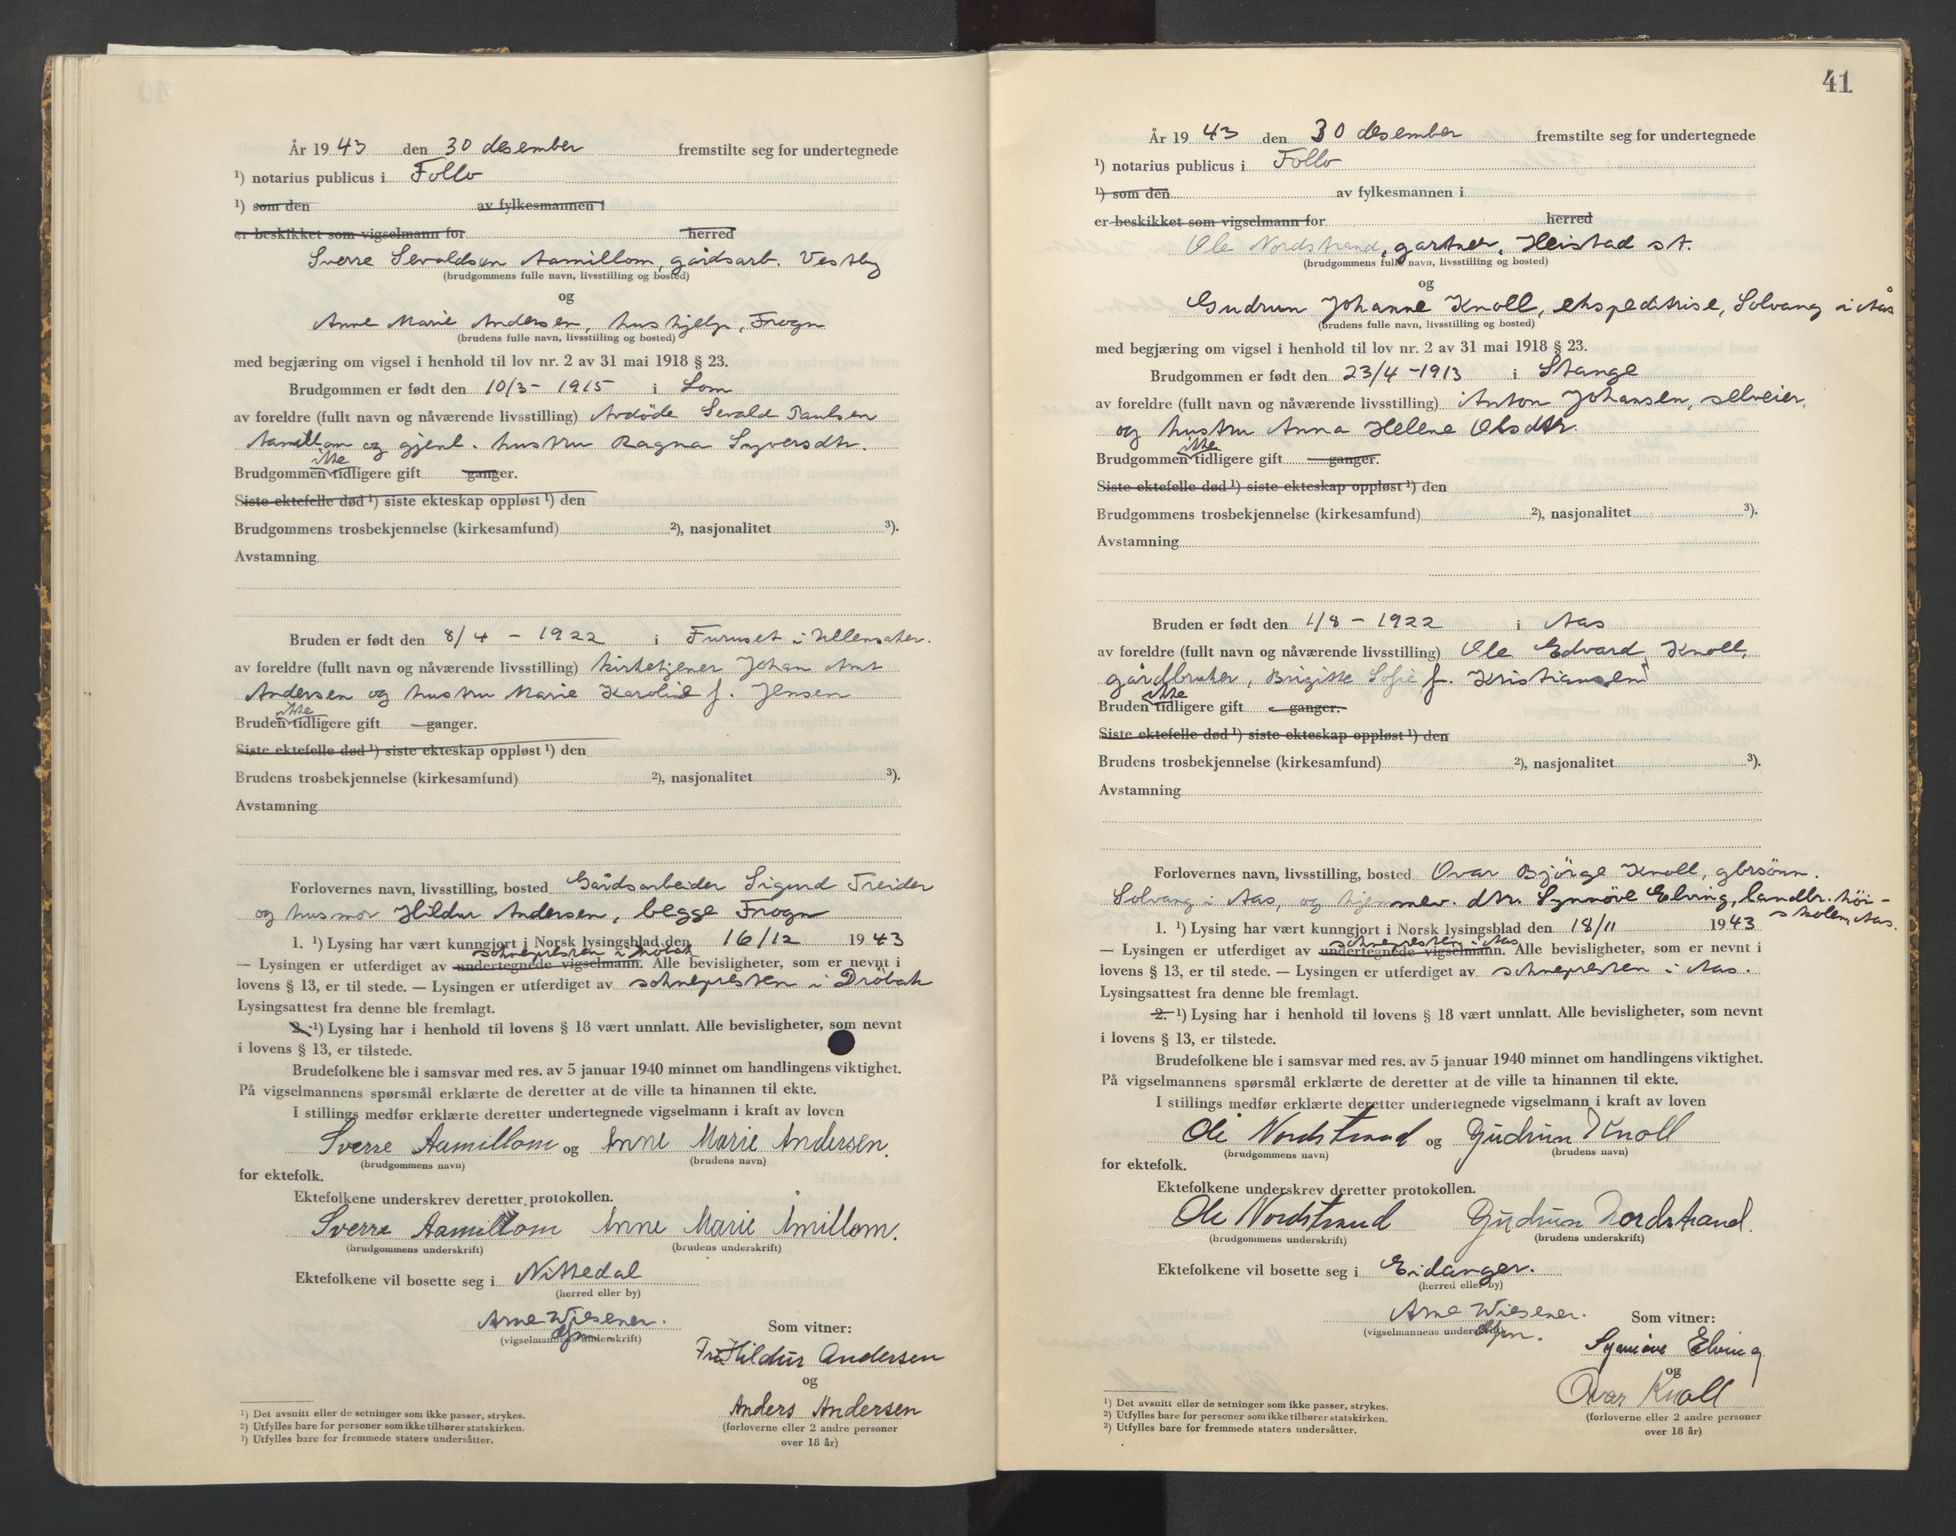 År 1943 den 30 desember fremstilte seg for undertegnede
¹) notarius publicus i Follo
¹) som den av fylkesmannen i
er beskikket som vigselmann for herred
Sverre Sevaldsen Aamillom, gårdsarb. Vestby
(brudgommens fulle navn, livsstilling og bosted)
og
Anne Marie Andersen, hushjelp, Frogn
(brudens fulle navn, livsstilling og bosted)
med begjæring om vigsel i henhold til lov nr. 2 av 31 mai 1918 § 23.
Brudgommen er født den 10/3 - 1915 i Lom
av foreldre (fullt navn og nåværende livsstilling) Avdöde Sevald Paulsen
Aamillom og gjenl. hustru Ragna Syversdtr.
ikke
Brudgommen tidligere gift ganger.
Siste ektefelle død ¹) siste ekteskap oppløst ¹) den
Brudgommens trosbekjennelse (kirkesamfund) ²), nasjonalitet ³).
Avstamning
Bruden er født den 8/4 - 1922 i Furuset i Ullensaker.
av foreldre (fullt navn og nåværende livsstilling) kirketjener Johan Arnt
Andersen og hustru Marie Karoline f. Jensen
ikke
Bruden tidligere gift - ganger.
Siste ektefelle død ¹) siste ekteskap oppløst ¹) den
Brudens trosbekjennelse (kirkesamfund) ²), nasjonalitet ³).
Avstamning
Forlovernes navn, livsstilling, bosted Gårdsarbeider Sigurd Treider
og husmor Hildur Andersen, begge Frogn
1. ¹) Lysing har vært kunngjort i Norsk lysingsblad den 16/12 1943
soknepresten i Dröbak
— Lysingen er utferdiget av undertegnede vigselmann. Alle bevisligheter, som er nevnt i
lovens § 13, er til stede. — Lysingen er utferdiget av soknepresten i Dröbak
Lysingsattest fra denne ble fremlagt.
2. ¹) Lysing har i henhold til lovens § 18 vært unnlatt. Alle bevisligheter, som nevnt
i lovens § 13, er tilstede.
Brudefolkene ble i samsvar med res. av 5 januar 1940 minnet om handlingens viktighet.
På vigselmannens spørsmål erklærte de deretter at de ville ta hinannen til ekte.
I stillings medfør erklærte deretter undertegnede vigselmann i kraft av loven
Sverre Aamillom og Anne Marie Andersen.
(brudgommens navn) (brudens navn)
for ektefolk.
Ektefolkene underskrev deretter protokollen.
Sverre Aamillom Anne Marie Åmillom.
(brudgommens underskrift) (brudens underskrift)
Ektefolkene vil bosette seg i Nittedal
(herred eller by)
Arne Wiesener.
(vigselmannens underskrift)
Som vitner:
Hildur Andersen
og
Anders Andersen
(forloverne eller 2 andre personer
over 18 år)
¹) Det avsnitt eller de setninger som ikke passer, strykes.
²) Utfylles bare for personer som ikke tilhører statskirken.
³) Utfylles bare for fremmede staters undersåtter.
41
År 1943 den 30 desember fremstilte seg for undertegnede
¹) notarius publicus i Follo
¹) som den av fylkesmannen i
er beskikket som vigselmann for herred
Ole Nordstrand, gartner, Heistad st.
(brudgommens fulle navn, livsstilling og bosted)
og
Gudrun Johanne Knoll, ekspeditrise, Solvang i Ås
(brudens fulle navn, livsstilling og bosted)
med begjæring om vigsel i henhold til lov nr. 2 av 31 mai 1918 § 23.
Brudgommen er født den 23/4 - 1913 i Stange
av foreldre (fullt navn og nåværende livsstilling) Anton Johansen, selveier,
og hustru Anna Helene Olsdtr.
ikke
Brudgommen tidligere gift — ganger.
Siste ektefelle død ¹) siste ekteskap oppløst ¹) den
Brudgommens trosbekjennelse (kirkesamfund) ²), nasjonalitet ³).
Avstamning
Bruden er født den 1/8 - 1922 i Aas
av foreldre (fullt navn og nåværende livsstilling) Ole Edvard Knoll,
gårdbruker, Brigitte Sofie f. Kristiansen
ikke
Bruden tidligere gift - ganger.
Siste ektefelle død ¹) siste ekteskap oppløst ¹) den
Brudens trosbekjennelse (kirkesamfund) ²), nasjonalitet ³).
Avstamning
Forlovernes navn, livsstilling, bosted Ovar Bjørge Knoll, gbrsønn.
Solvang i Aas, og hjemmev. dtr. Synnöve Elving, landbr. höi-
skolen, Aas.
1. ¹) Lysing har vært kunngjort i Norsk lysingsblad den 18/11 1943
soknepresten i Aas
— Lysingen er utferdiget av undertegnede vigselmann. Alle bevisligheter, som er nevnt i
lovens § 13, er til stede. — Lysingen er utferdiget av soknepresten i Aas.
Lysingsattest fra denne ble fremlagt.
2. ¹) Lysing har i henhold til lovens § 18 vært unnlatt. Alle bevisligheter, som nevnt
i lovens § 13, er tilstede.
Brudefolkene ble i samsvar med res. av 5 januar 1940 minnet om handlingens viktighet.
På vigselmannens spørsmål erklærte de deretter at de ville ta hinannen til ekte.
I stillings medfør erklærte deretter undertegnede vigselmann i kraft av loven
Ole Nordstrand og Gudrun Knoll
(brudgommens navn) (brudens navn)
for ektefolk.
Ektefolkene underskrev deretter protokollen.
Ole Nordstrand Gudrun Nordstrand.
(brudgommens underskrift) (brudens underskrift)
Ektefolkene vil bosette seg i Eidanger.
(herred eller by)
Arne Wiesener.
(vigselmannens underskrift)
Som vitner:
Synnöve Elving
og
Ovar Knoll
(forloverne eller 2 andre personer
over 18 år)
¹) Det avsnitt eller de setninger som ikke passer, strykes.
²) Utfylles bare for personer som ikke tilhører statskirken.
³) Utfylles bare for fremmede staters undersåtter.